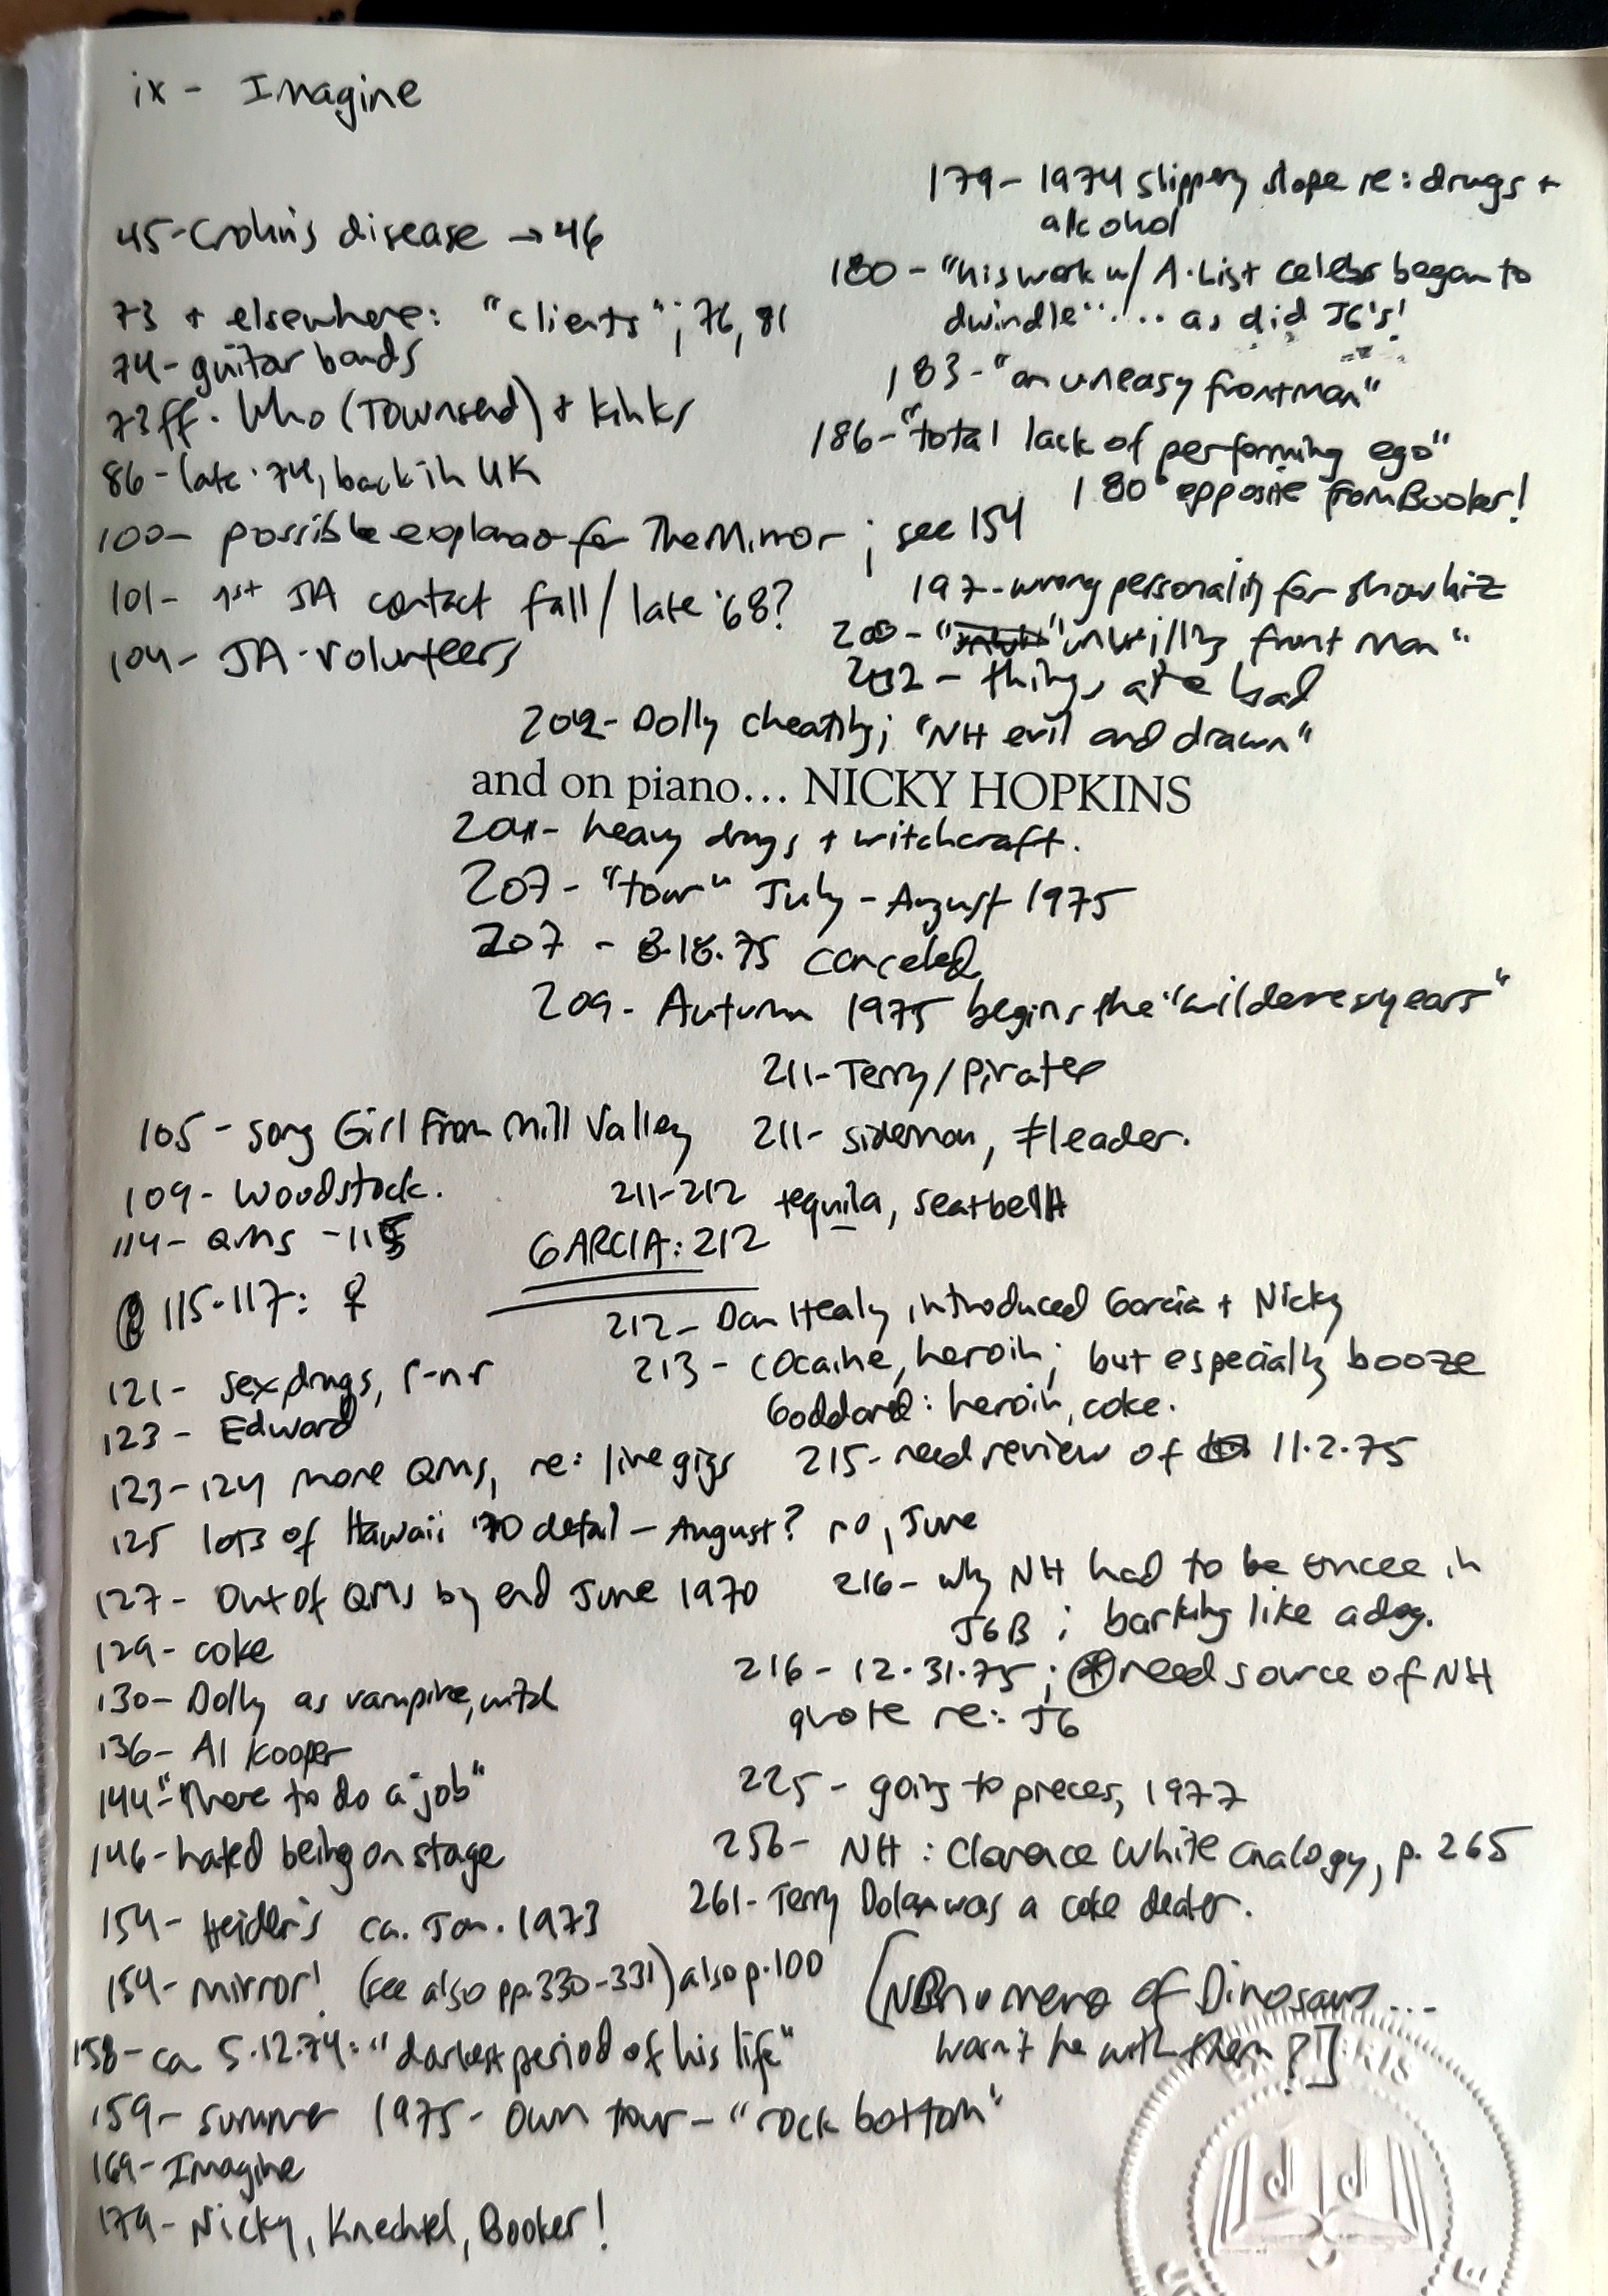 ix - Imagine
45 - Crohn's disease → 46
73 + elsewhere: "clients"; 76, 81
74 - guitar bands
73ff. Who (Townsend) + Kinks
86 - late '74, back in UK
100 - possible explanao for The Mirror; see 154
101 - 1st JA contact fall/late '68?
104 - JA - Volunteers
179 - 1974 slippery slope re: drugs +
alcohol
180 - "his work w/ A-List celebs began to
dwindle".... as did JG's!
183 - "an uneasy frontman"
186 - "total lack of performing ego"
180° opposite from Booker!
197 - wrong personality for showbiz
200 - "unwilling front man"
202 - things are bad
202 - Dolly cheating; "NH evil and drawn"
and on piano... NICKY HOPKINS
204 - heavy drugs + witchcraft.
207 - "tour" July - August 1975
207 - 8.18.75 canceled
209 - Autumn 1975 begins the "wilderness years"
211 - Terry/Pirates
211 - sideman, ≠ leader.
211-212 tequila, seatbelt
GARCIA: 212
212 - Dan Healy introduced Garcia + Nicky
213 - cocaine, heroin; but especially booze
Goddard: heroin, coke.
215 - need review of 11.2.75
216 - why NH had to be emcee in
JGB; barking like a dog.
216 - 12.31.75; * need source of NH
quote re: JG
225 - going to pieces, 1977
256 - NH: Clarence White analogy, p. 265
261 - Terry Dolan was a coke dealer.
[NB no menо of Dinosaurs...
wasn't he with them?]
105 - song Girl From Mill Valley
109 - Woodstock.
114 - QMS - 115
115-117: ♀
121 - sex, drugs, r-n-r
123 - Edward
123-124 more QMS, re: live gigs
125 lots of Hawaii '70 detail - August? no, June
127 - out of QMS by end June 1970
129 - coke
130 - Dolly as vampire, witch
136 - Al Kooper
144 - "there to do a job"
146 - hated being on stage
154 - Heider's ca. Jan. 1973
154 - mirror! (see also pp. 330-331) also p. 100
158 - ca 5.12.74: "darkest period of his life"
159 - summer 1975 - own tour - "rock bottom"
169 - Imagine
179 - Nicky, Knechtel, Booker!